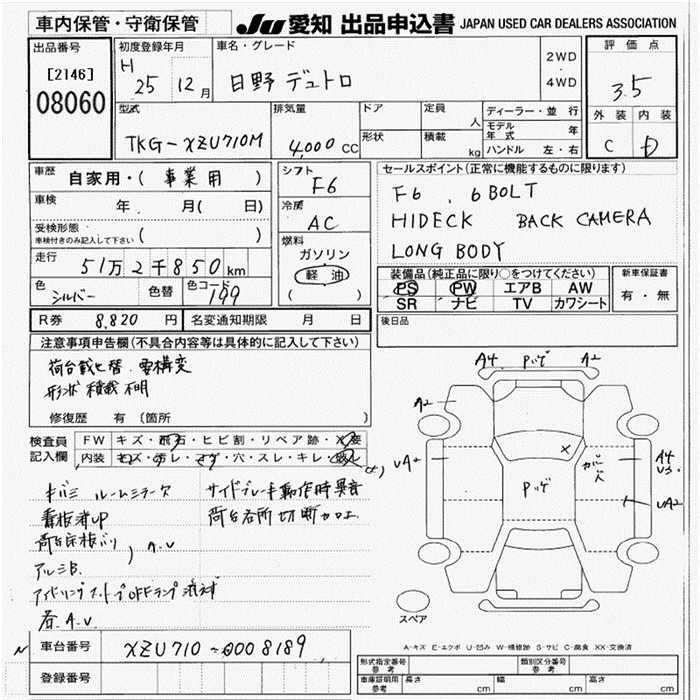 車内保管・守衛保管
JU 愛知 出品申込書 JAPAN USED CAR DEALERS ASSOCIATION
出品番号
[2146]
08060
初度登録年月
H 25 12月
車名・グレード
日野 デュトロ
2WD
・
4WD
評価点
3.5
外装 内装
C D
型式
TKG-XZU710M
排気量
4,000 CC
ドア
形状
定員 人
積載 kg
ディーラー・並行
モデル年式 年
ハンドル 左・右
車歴 自家用・( 事業用 )
車検 年 月( 日)
受検形態
車検付きのみ記入して下さい ( )
走行 51万2千850km
色 シルバー 色替 色コード 199
シフト
F6
冷房
AC
燃料
ガソリン
軽油
( )
セールスポイント(正常に機能するものに限ります)
F6 . 6BOLT
HIDECK BACK CAMERA
LONG BODY
装備品(純正品に限り○をつけてください)
PS PW エアB AW
SR ナビ TV カワシート
新車保証書
有・無
R券 8,820 円 名変通知期限 月 日
後日品
注意事項申告欄(不具合内容等は具体的に記入して下さい)
荷台載せ替. 要構変
形状 積載 不明
修復歴 有 〔箇所 〕
検査員
記入欄
FW キズ・飛石・ヒビ割・リペア跡・X要
内装 キズ・汚レ・コゲ・穴・スレ・キレ・
キバミ ルームミラーヌケ サイドブレーキ動作時異音
看板跡UP 荷台各所切断カロエ.
A.U
アルミB.
アイドリングストップOFFランプ点滅
A.U
車台番号 XZU710-0008189
登録番号
A4 Pハゲ A2
A2
UA2
Pハゲ
X
カバー欠
A4
U3
UA2
スペア
A-キズ E-エクボ U-凹み W-補修跡 S-サビ C-腐食 XX-交換済
形式指定番号
参考
類別区分番号
参考
車庫証明用
参考
長さ cm 幅 cm 高さ cm